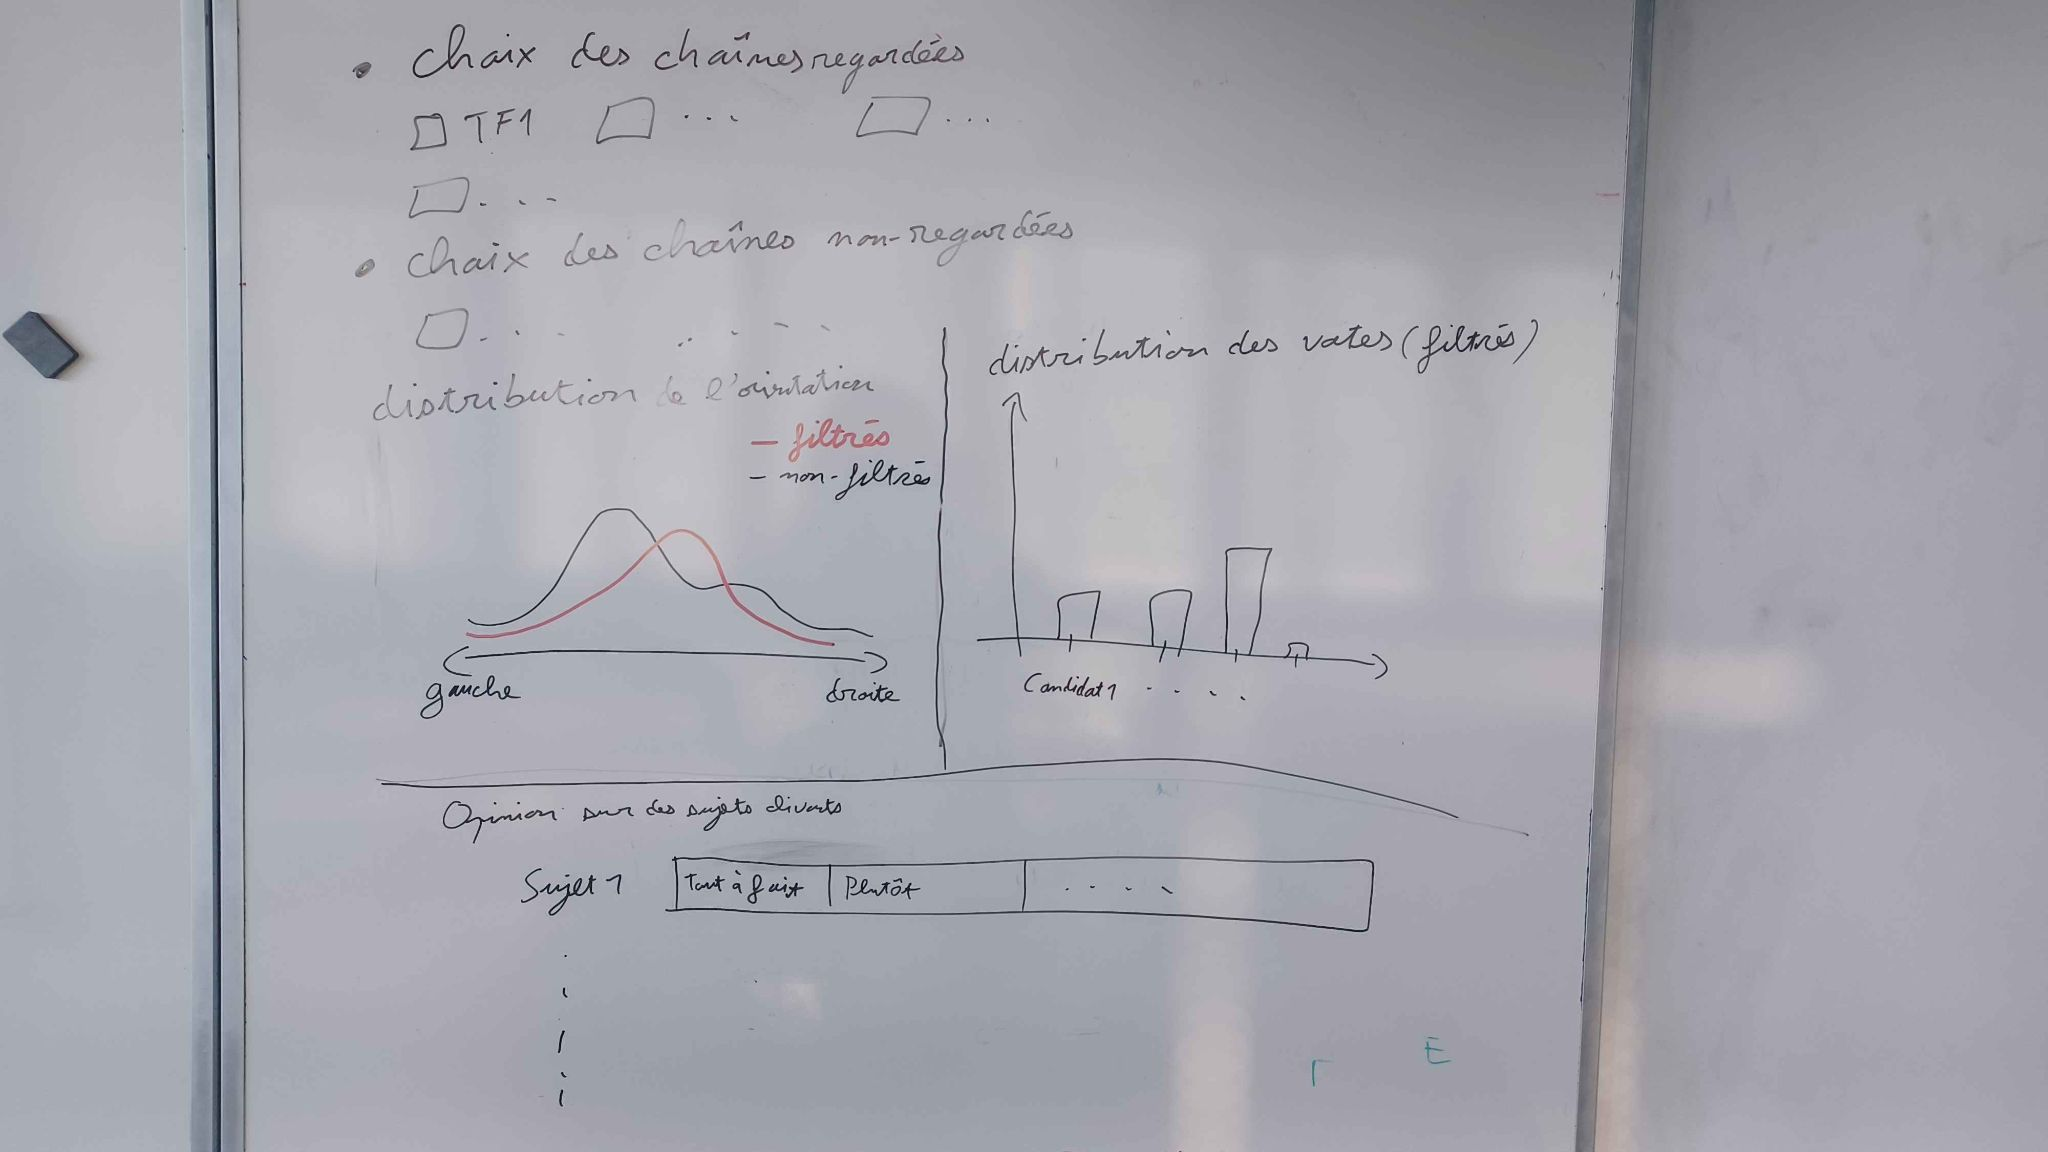 • choix des chaînes regardées
TF1 ... ...
...
• choix des chaînes non-regardées
distribution de l'orientation
— filtrés
— non-filtrés
gauche droite
distribution des votes (filtrés)
Candidat 1 ....
Opinion sur des sujets divers
Sujet 1 Tout à fait Plutôt ....
Γ E